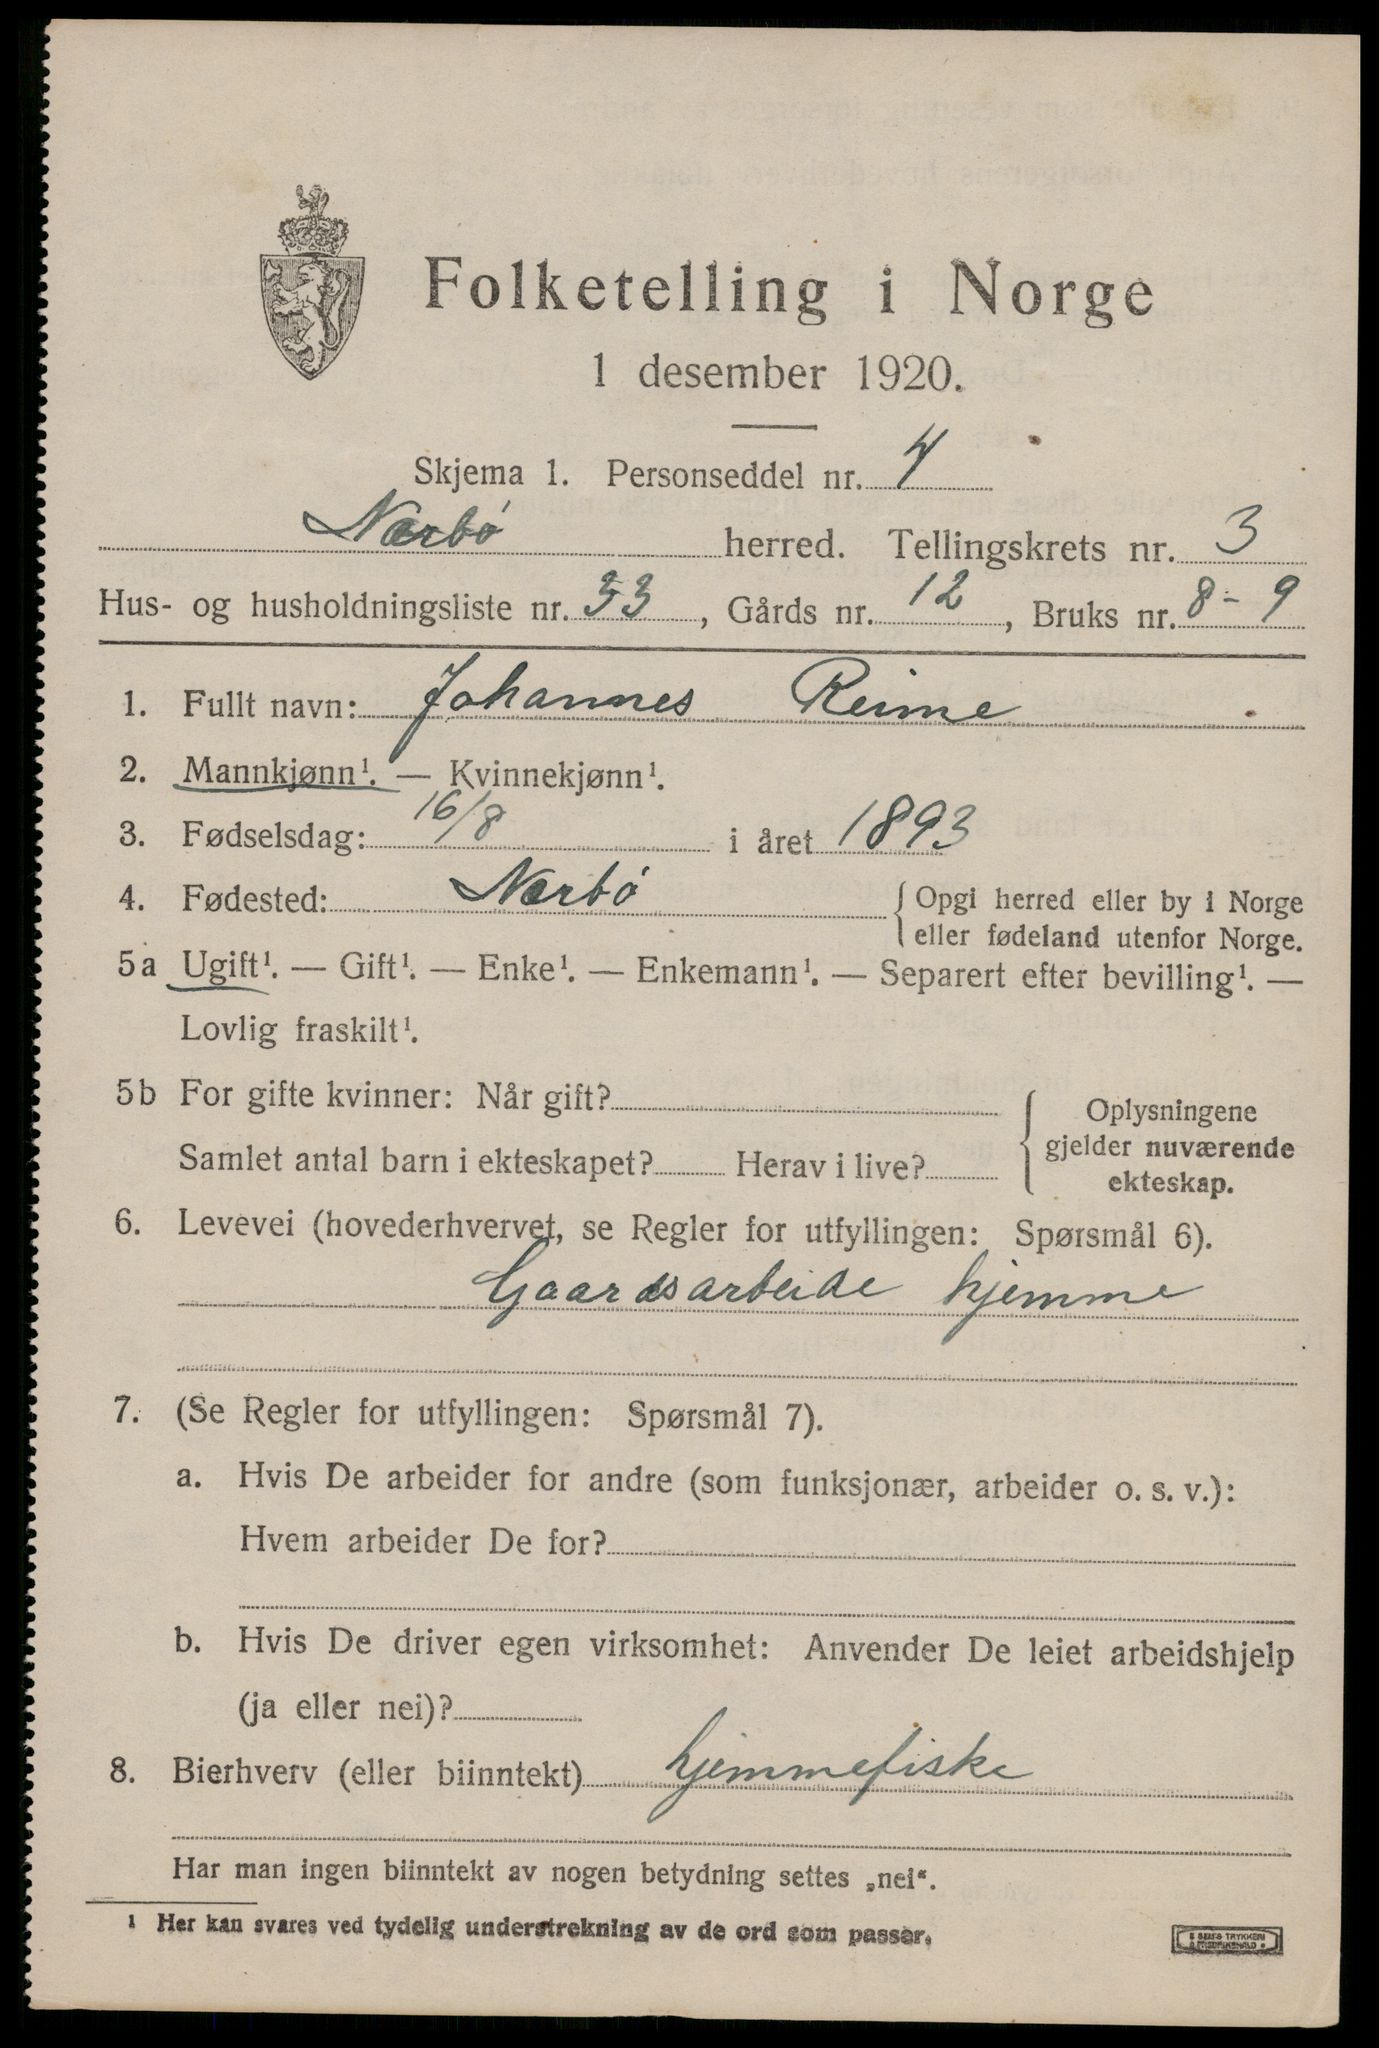 Folketelling i Norge
1 desember 1920.
Skjema 1. Personseddel nr. 4
Nærbö herred. Tellingskrets nr. 3
Hus- og husholdningsliste nr. 33, Gårds nr. 12, Bruks nr. 8-9
1. Fullt navn: Johannes Reime
2. Mannkjønn¹. — Kvinnekjønn¹.
3. Fødselsdag: 16/8 i året 1893
4. Fødested: Nærbö { Opgi herred eller by i Norge
eller fødeland utenfor Norge.
5a Ugift¹. — Gift¹. — Enke¹. — Enkemann¹. — Separert efter bevilling¹. —
Lovlig fraskilt¹.
5b For gifte kvinner: Når gift?
Samlet antal barn i ekteskapet? Herav i live?
Oplysningene
gjelder nuværende
ekteskap.
6. Levevei (hovederhvervet, se Regler for utfyllingen: Spørsmål 6).
Gaardsarbeide hjemme
7. (Se Regler for utfyllingen: Spørsmål 7).
a. Hvis De arbeider for andre (som funksjonær, arbeider o. s. v.):
Hvem arbeider De for?
b. Hvis De driver egen virksomhet: Anvender De leiet arbeidshjelp
(ja eller nei)?
8. Bierhverv (eller biinntekt) hjemmefiske
Har man ingen biinntekt av nogen betydning settes „nei“.
¹ Her kan svares ved tydelig understrekning av de ord som passer.